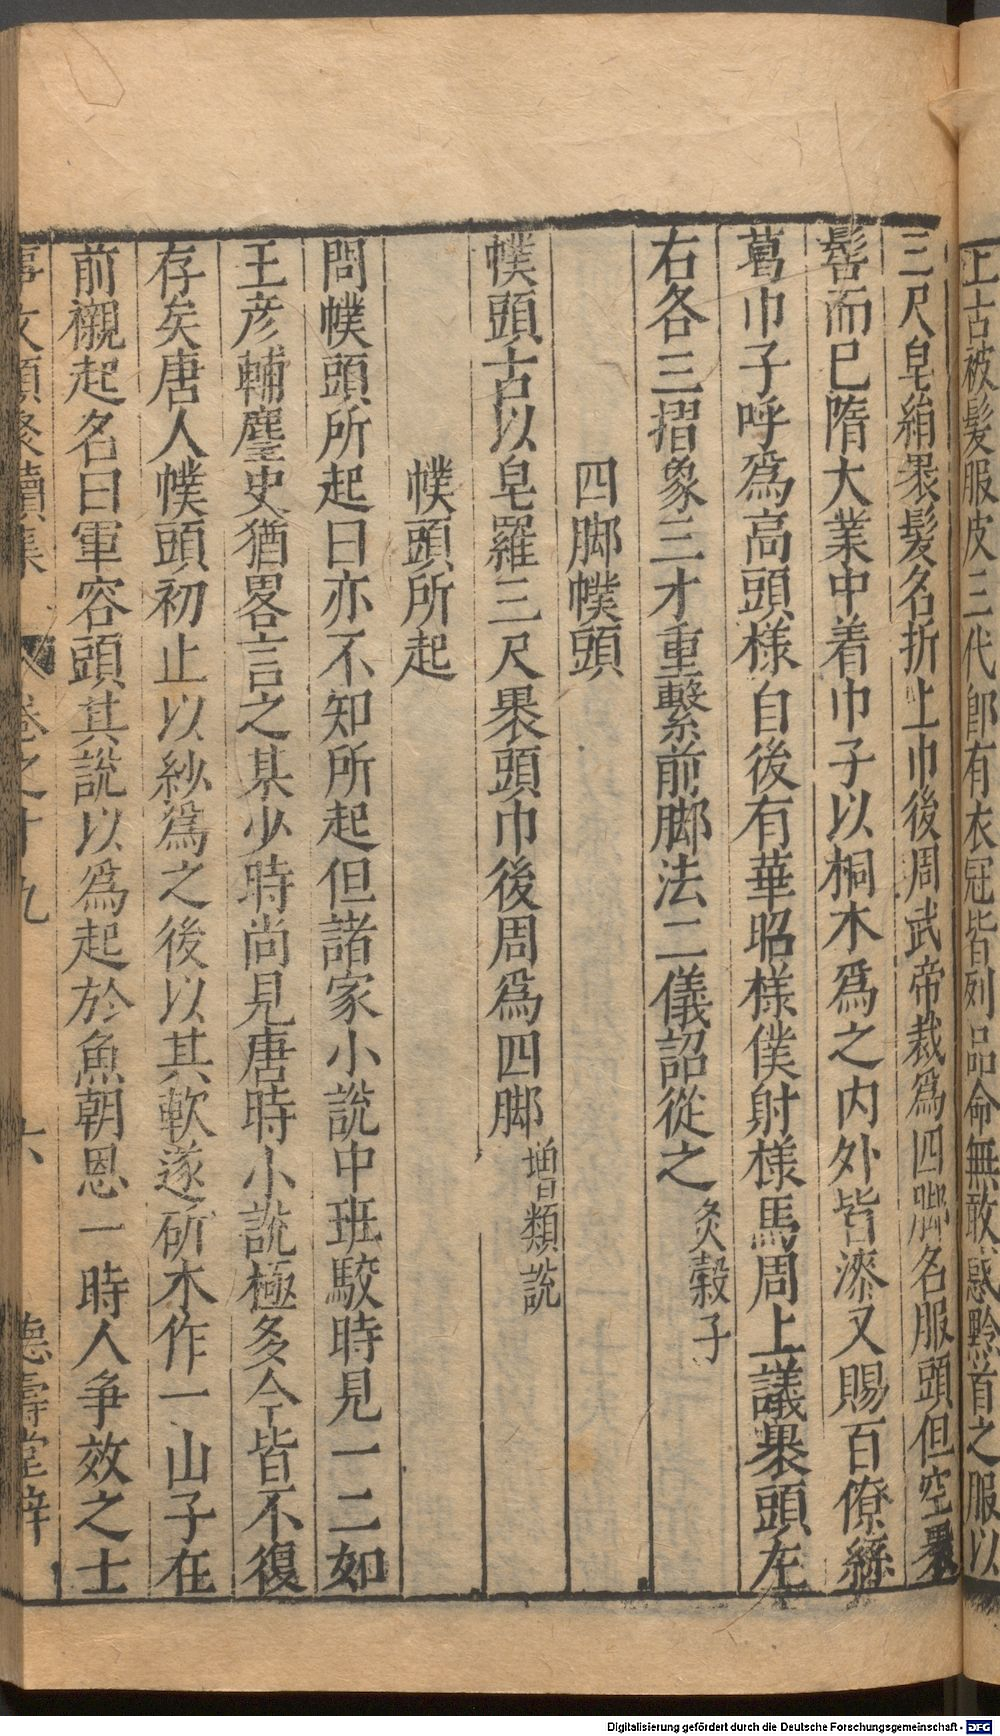 上古被髮服皮三代卽有衣冠皆列品命無敢惑黔首之服以
三尺皂絹褁髮名折上巾後周武帝裁爲四脚名服頭但空褁
髻而已隋大業中着巾子以桐木爲之内外皆漆又賜百僚絲
葛巾子呼爲高頭樣自後有華昭樣僕射樣馬周上議褁頭左
右各三摺象三才重繫前脚法二儀詔從之炙轂子
四脚幞頭
幞頭古以皂羅三尺褁頭巾後周爲四脚增類說
幞頭所起
問幞頭所起曰亦不知所起但諸家小說中班駮時見一二如
王彦輔麈史猶畧言之某少時尚見唐時小說極多今皆不復
存矣唐人幞頭初止以紗爲之後以其軟遂斫木作一山子在
前襯起名曰軍容頭其說以爲起於魚朝恩一時人爭效之士
事文類聚續集 卷之十九 六 德壽堂梓
Digitalisierung gefördert durch die Deutsche Forschungsgemeinschaft - DFG